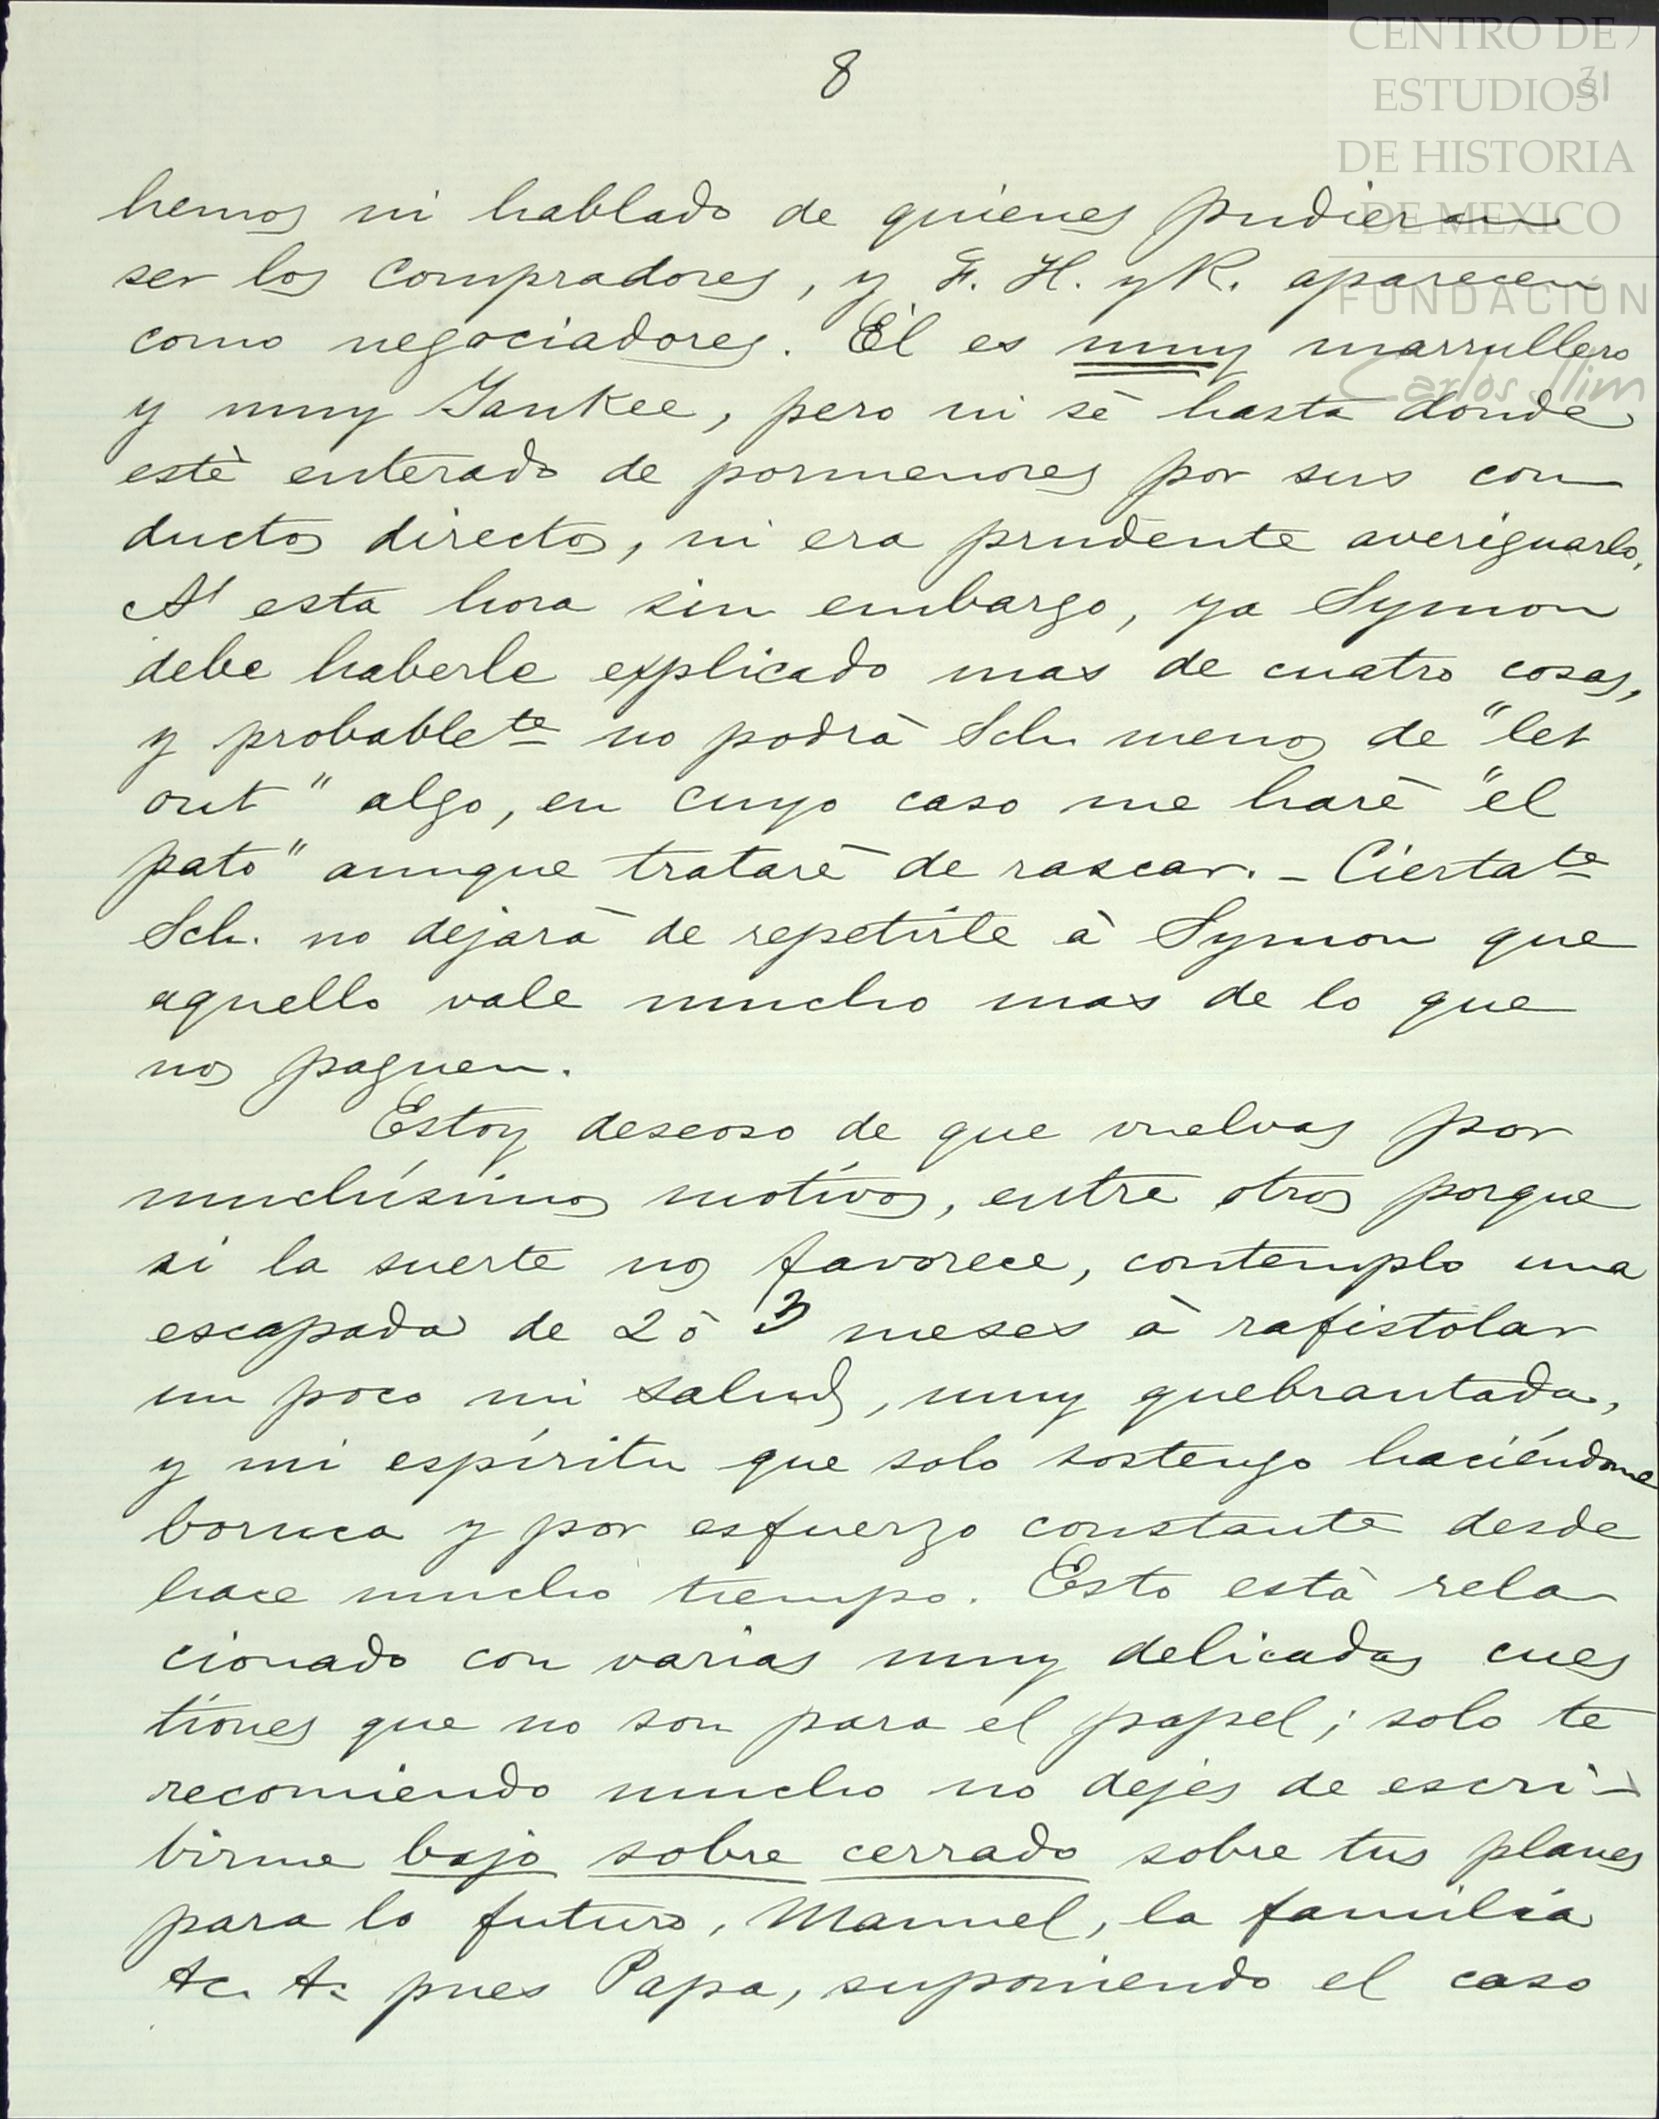 8
31
CENTRO DE
ESTUDIOS
DE HISTORIA
DE MEXICO
FUNDACION
Carlos Slim
hemos ni hablado de quienes pudieran
ser los compradores, y F. H. y R. aparecen
como negociadores. Él es muy marrullero
y muy Yankee, pero ni sè hasta donde
estè enterado de pormenores por sus con
ductos directos, ni era prudente averiguarlo.
A' esta hora sin embargo, ya Symon
debe haberle explicado mas de cuatro cosas,
y probablete no podrà Sch menos de "let
out" algo, en cuyo caso me harè "el
pato" aunque tratarè de rascar. - Ciertate
Sch. no dejarà de repetirle à Symon que
aquello vale mucho mas de lo que
nos paguen.
Estoy deseoso de que vuelvas por
muchísimos motivos, entre otros porque
si la suerte nos favorece, contemplo una
escapada de 2 ò 3 meses à rafistolar
un poco mi salud, muy quebrantada,
y mi espíritu que solo sostengo haciéndome
boruca y por esfuerzo constante desde
hace mucho tiempo. Esto està rela
cionado con varias muy delicadas cues
tiones que no son para el papel; solo te
recomiendo mucho no dejes de escri-
birme bajo sobre cerrado sobre tus planes
para lo futuro, Manuel, la familia
&c. &c pues Papa, suponiendo el caso